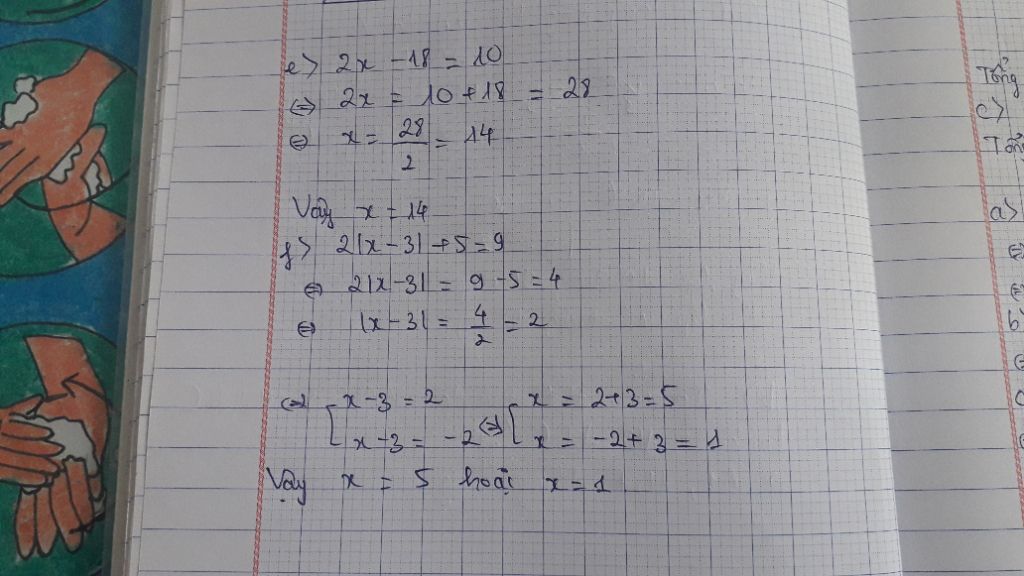 e> 2x - 18 = 10
⇔ 2x = 10 + 18 = 28
⇔ x = 28/2 = 14
Vậy x = 14
f> 2|x - 3| + 5 = 9
⇔ 2|x - 3| = 9 - 5 = 4
⇔ |x - 3| = 4/2 = 2
⇔ [ x - 3 = 2 ⇔ [ x = 2 + 3 = 5
x - 3 = -2 x = -2 + 3 = 1
Vậy x = 5 hoặc x = 1
Tổng
c>
a>
b>